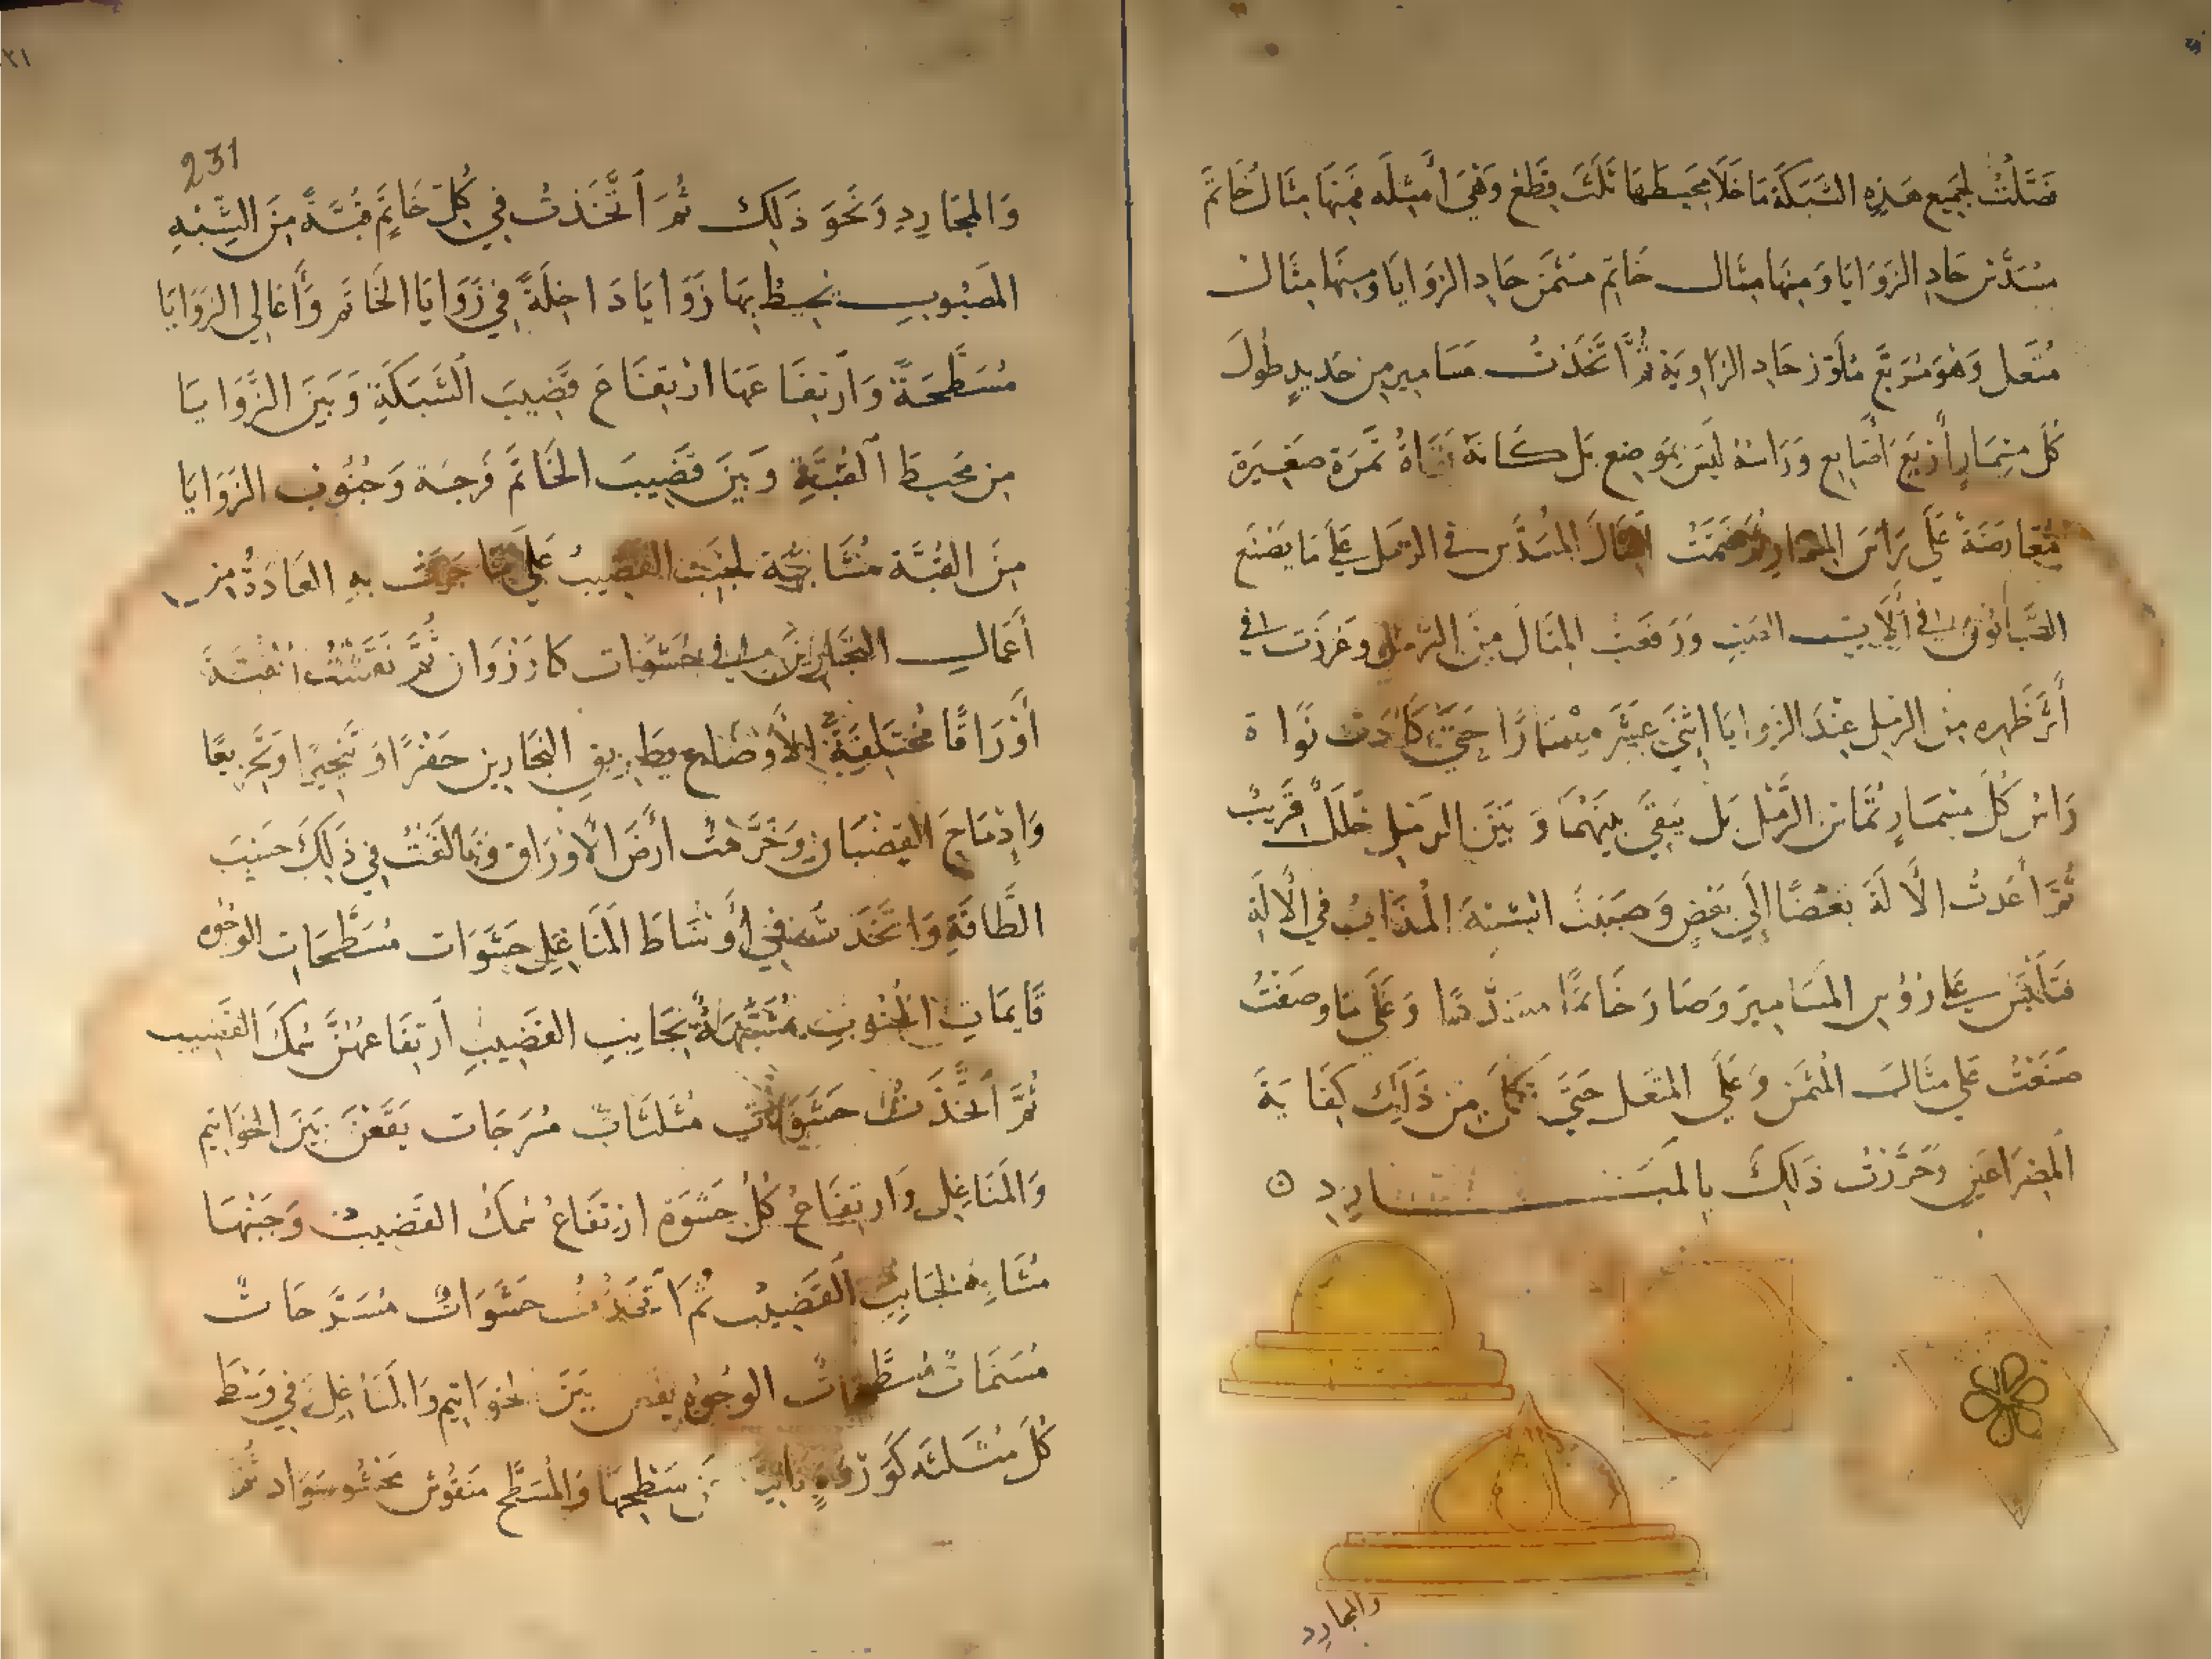 فصلت لجميع هذه الشبكة ما خلا محيطها ثلث قطع وهي امثله فمنها مثال خاتم
مسدس حاد الزوايا ومنها مثال خاتم مثمن حاد الزوايا ومنها مثال
منعل وهو مربع ملوز حاد الزاوية ثم اتخذت مسامير من حديد طول
كل مسمار أربع أصابع وراسه ليس بموضع بل كانه نواة تمرة صغيرة
متعارضة على راس المسمار ثم ضمنت المثال المسدس في الرمل على ما يصنع
الصبانون في ألا يبت ورفعت المثال من الرمل وغرزت في
أثر ظهره من الرمل عند الزوايا اثني عشر مسمارا حتي كادت نواة
راس كل مسمار تماس الرمل بل يبقي بينهما و بين الرمل خلل قريب
ثم أعدت الالة بعضا إلي بعض وصببت الشبه المذاب في الالة
فتلبس علي رؤس المسامير وصار خاتما مسدسا وعلى ما وصفت
صنعت علي مثال المثمن وعلي المنعل حتي تكمل من ذلك كفاية
المصراعين وحررت ذلك بالمبارد ن
والمجارد
231
والمجارد ونحو ذلك ثم اتخذت في كل خاتم قبة من الشبه
المصبوب يحيط بها زوايا داخلة في زوايا الخاتم وأعالي الزوايا
مسطحة وارتفاعها ارتفاع قضيب الشبكة وبين الزوايا
من محيط القبة وبين قضيب الخاتم فرجة وجنوب الزوايا
من القبة مشابهة لجنب القضيب علي ما جرت به العادة من
أعمال النجارين في حشوات كاررزوان ثم نقشت القبة
أوراقا مختلفة الأوضاع بطريق النجارين حفرا وتنجيرا وتجريعا
وإدماج القضبان وخرمت أرض الاوراق وبالغت في ذلك حسب
الطاقة واتخذت في أوساط المناغل حشوات مسطحات الوجوه
قايمات الجنوب مشبهة بجانب القضيب ارتفاعهن سمك القضيب
ثم اتخذت حشوات مثلثات مسرجات يقعن بين الخواتيم
والمناغل وارتفاع كل حشوة ارتفاع سمك القضيب وجنبها
مشابه لجانب القضيب ثم اتخذت حشوات مسدحات
مسنمات مسطحات الوجوه يقعن بين الخواتيم والمناغل في وسط
كل مثلثه كوردة عن سطحها والمسطح منقوش محشو سواد ثم